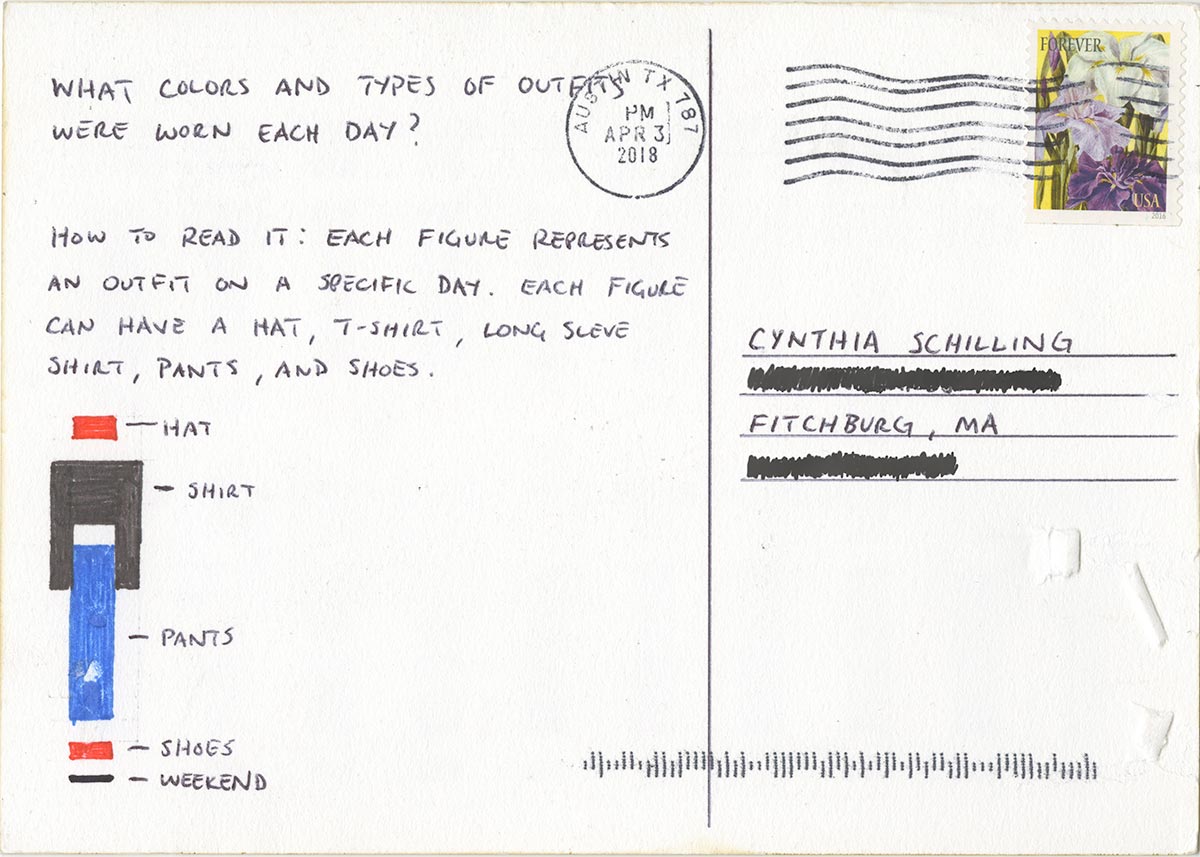 WHAT COLORS AND TYPES OF OUTFITS
WERE WORN EACH DAY?
HOW TO READ IT: EACH FIGURE REPRESENTS
AN OUTFIT ON A SPECIFIC DAY. EACH FIGURE
CAN HAVE A HAT, T-SHIRT, LONG SLEVE
SHIRT, PANTS, AND SHOES.
HAT
SHIRT
PANTS
SHOES
WEEKEND
AUSTIN TX 787
PM
APR 3
2018
FOREVER
USA
2016
CYNTHIA SCHILLING
FITCHBURG, MA